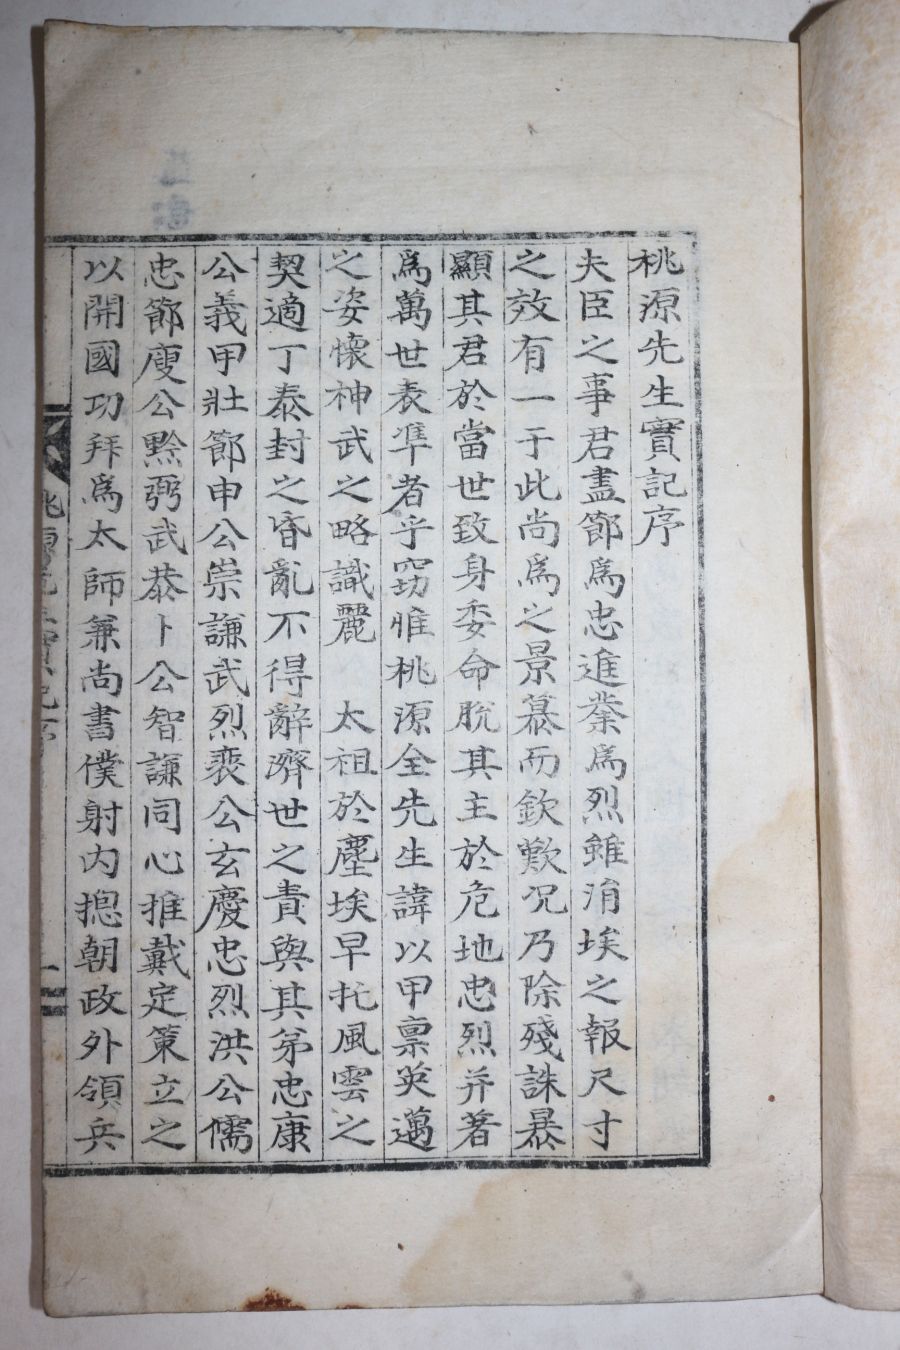 桃源先生實記序
夫臣之事君盡節爲忠進業爲烈雖涓埃之報尺寸
之效有一于此尚爲之景慕而欽歎况乃除殘誅暴
顯其君於當世致身委命脫其主於危地忠烈并著
爲萬世表準者乎窃惟桃源全先生諱以甲禀英邁
之姿懷神武之略識麗 太祖於塵埃早托風雲之
契適丁泰封之昏亂不得辭濟世之責與其弟忠康
公義甲壯節申公崇謙武烈裵公玄慶忠烈洪公儒
忠節庾公黔弼武恭卜公智謙同心推戴定策立之
以開國功拜爲太師兼尚書僕射內揔朝政外領兵
桃源先生實記序
一